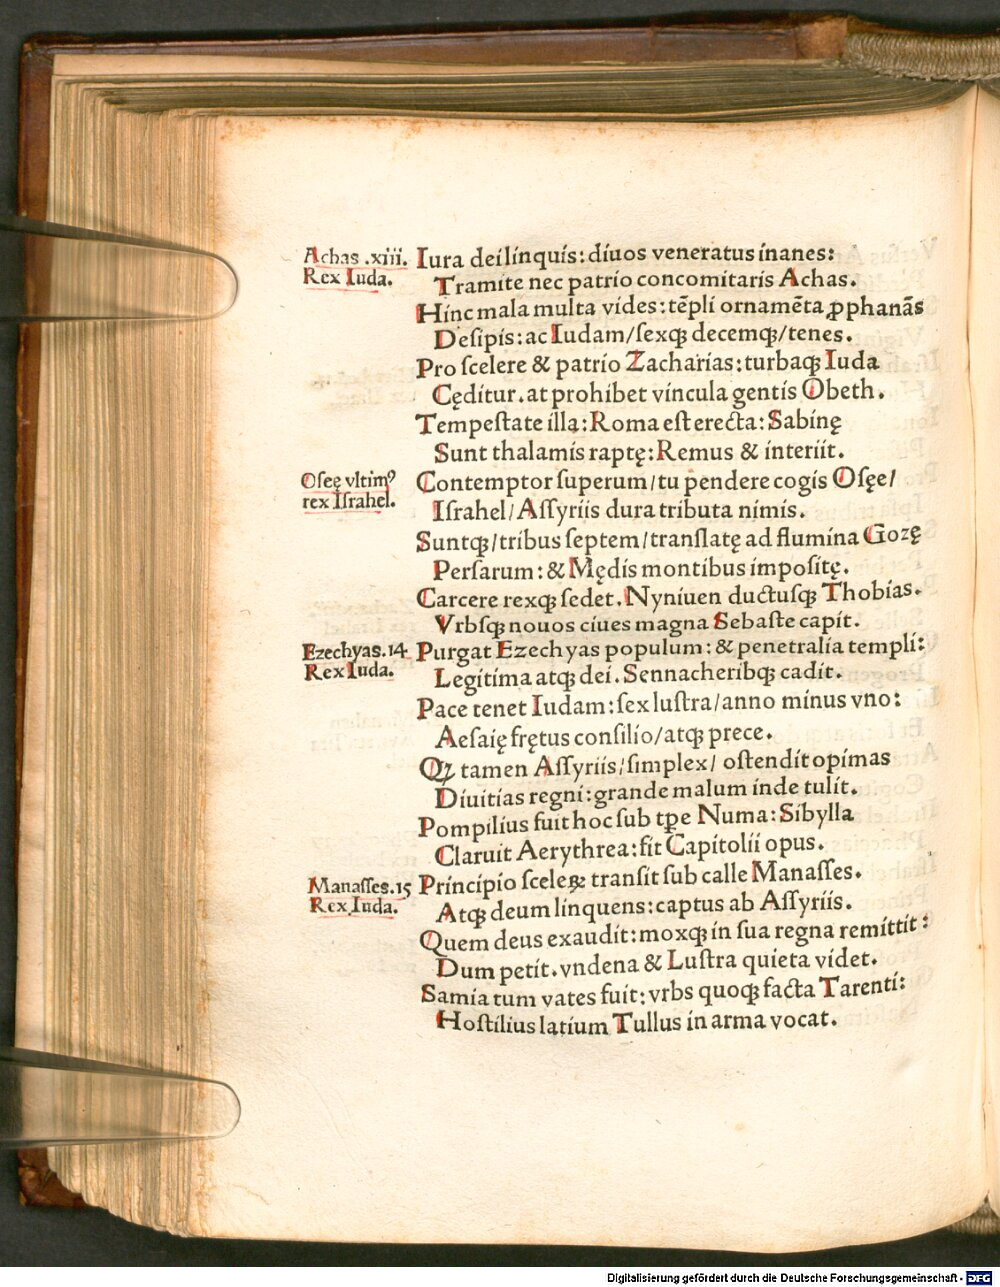 Achas .xiii.
Rex Iuda.
Iura dei linquis: diuos veneratus inanes:
Tramite nec patrio concomitaris Achas.
Hinc mala multa vides: tẽpli ornamẽta ꝓphanãs
Desipis: ac Iudam/sexqꝫ decemqꝫ/tenes.
Pro scelere & patrio Zacharias: turbaqꝫ Iuda
Cęditur. at prohibet vincula gentis Obeth.
Tempestate illa: Roma est erecta: Sabinę
Sunt thalamis raptę: Remus & interiit.
Oseę vltimꝰ
rex Israhel.
Contemptor superum/tu pendere cogis Osęe/
Israhel/Assyriis dura tributa nimis.
Suntqꝫ/tribus septem/translatę ad flumina Gozę
Persarum: & Mędis montibus impositę.
Carcere rexqꝫ sedet. Nyniuen ductusqꝫ Thobias.
Vrbsqꝫ nouos ciues magna Sebaste capit.
Ezechyas.14
Rex Iuda.
Purgat Ezechyas populum: & penetralia templi:
Legitima atqꝫ dei. Sennacheribqꝫ cadit.
Pace tenet Iudam: sex lustra/anno minus vno:
Aesaię frętus consilio/atqꝫ prece.
Qꝫ tamen Assyriis/simplex/ ostendit opimas
Diuitias regni: grande malum inde tulit.
Pompilius fuit hoc sub tꝑe Numa: Sibylla
Claruit Aerythrea: fit Capitolii opus.
Manasses.15
Rex Iuda.
Principio sceleꝝ transit sub calle Manasses.
Atqꝫ deum linquens: captus ab Assyriis.
Quem deus exaudit: moxqꝫ in sua regna remittit:
Dum petit. vndena & Lustra quieta videt.
Samia tum vates fuit: vrbs quoqꝫ facta Tarenti:
Hostilius latium Tullus in arma vocat.
Digitalisierung gefördert durch die Deutsche Forschungsgemeinschaft - DFG